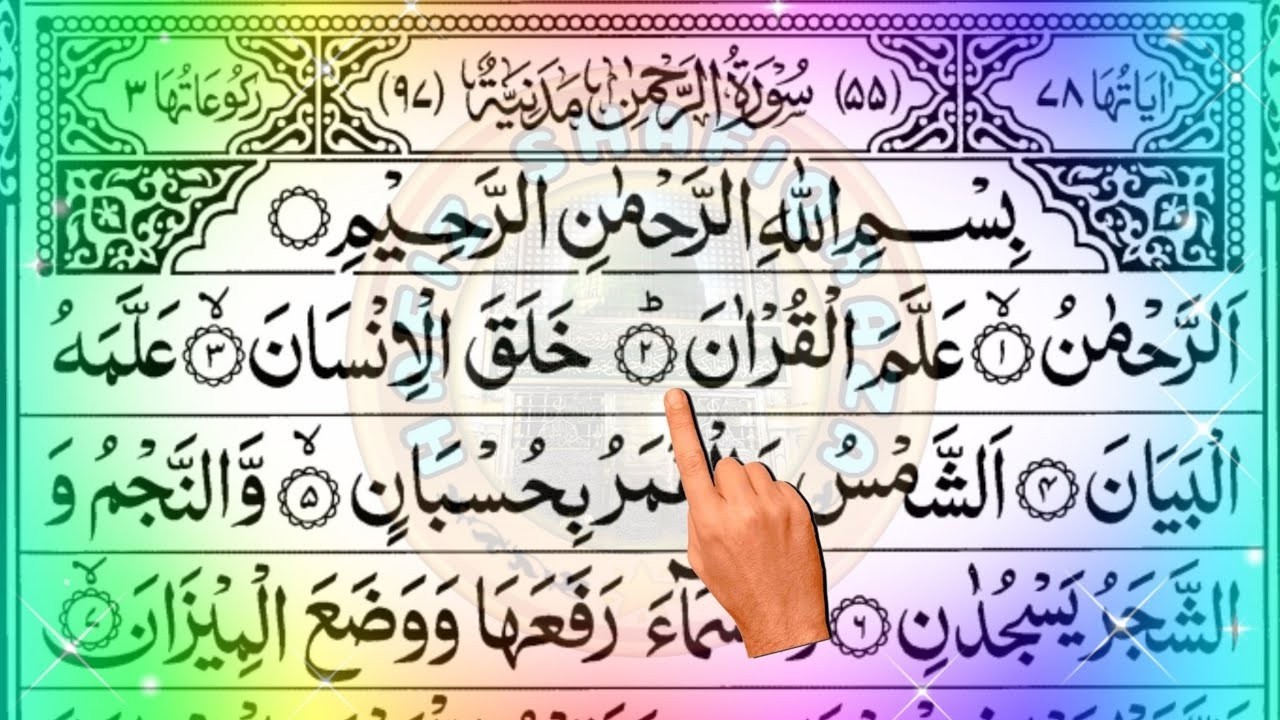 اٰيَاتُهَا ٧٨ (٥٥) سُوْرَةُ الرَّحْمٰنِ مَدَنِيَّةٌ (٩٧) رُكُوْعَاتُهَا ٣
بِسْمِ اللّٰهِ الرَّحْمٰنِ الرَّحِيْمِ
اَلرَّحْمٰنُ ۙ﴿١﴾ عَلَّمَ الْقُرْاٰنَ ؕ﴿٢﴾ خَلَقَ الْاِنْسَانَ ۙ﴿٣﴾ عَلَّمَهُ
الْبَيَانَ ﴿٤﴾ اَلشَّمْسُ وَالْقَمَرُ بِحُسْبَانٍ ۙ﴿٥﴾ وَّالنَّجْمُ وَ
الشَّجَرُ يَسْجُدٰنِ ﴿٦﴾ رَفَعَهَا وَوَضَعَ الْمِيْزَانَ ۙ﴿٧﴾
HAFIZ SHAFIQ RAZA